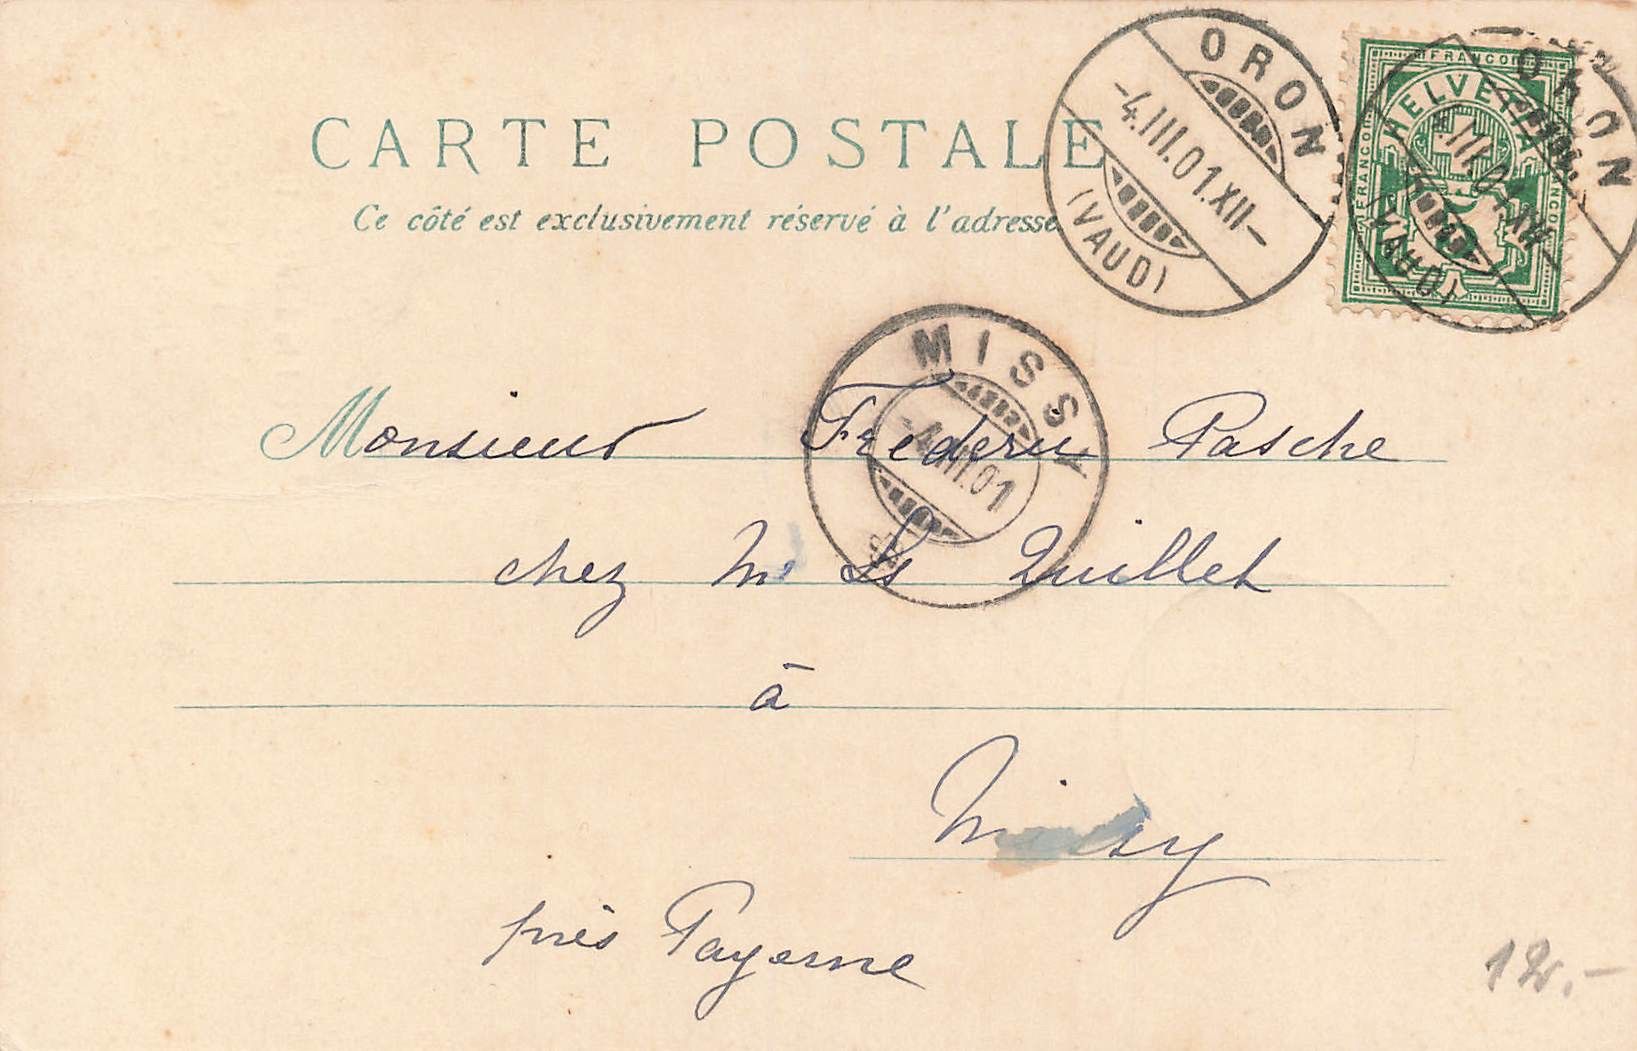 CARTE POSTALE
Ce côté est exclusivement réservé à l'adresse
ORON
-4.III.01.XII-
(VAUD)
FRANCO
HELVETIA
FRANCO
ORON
III.01.XII-
(VAUD)
MISSY
-4.III.01
Monsieur Frederic Pasche
chez Mr Ls Quillet
à
Missy
près Payerne
12.-